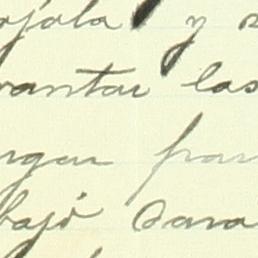 ojala y
vantar las
ngar par
bajó Sara